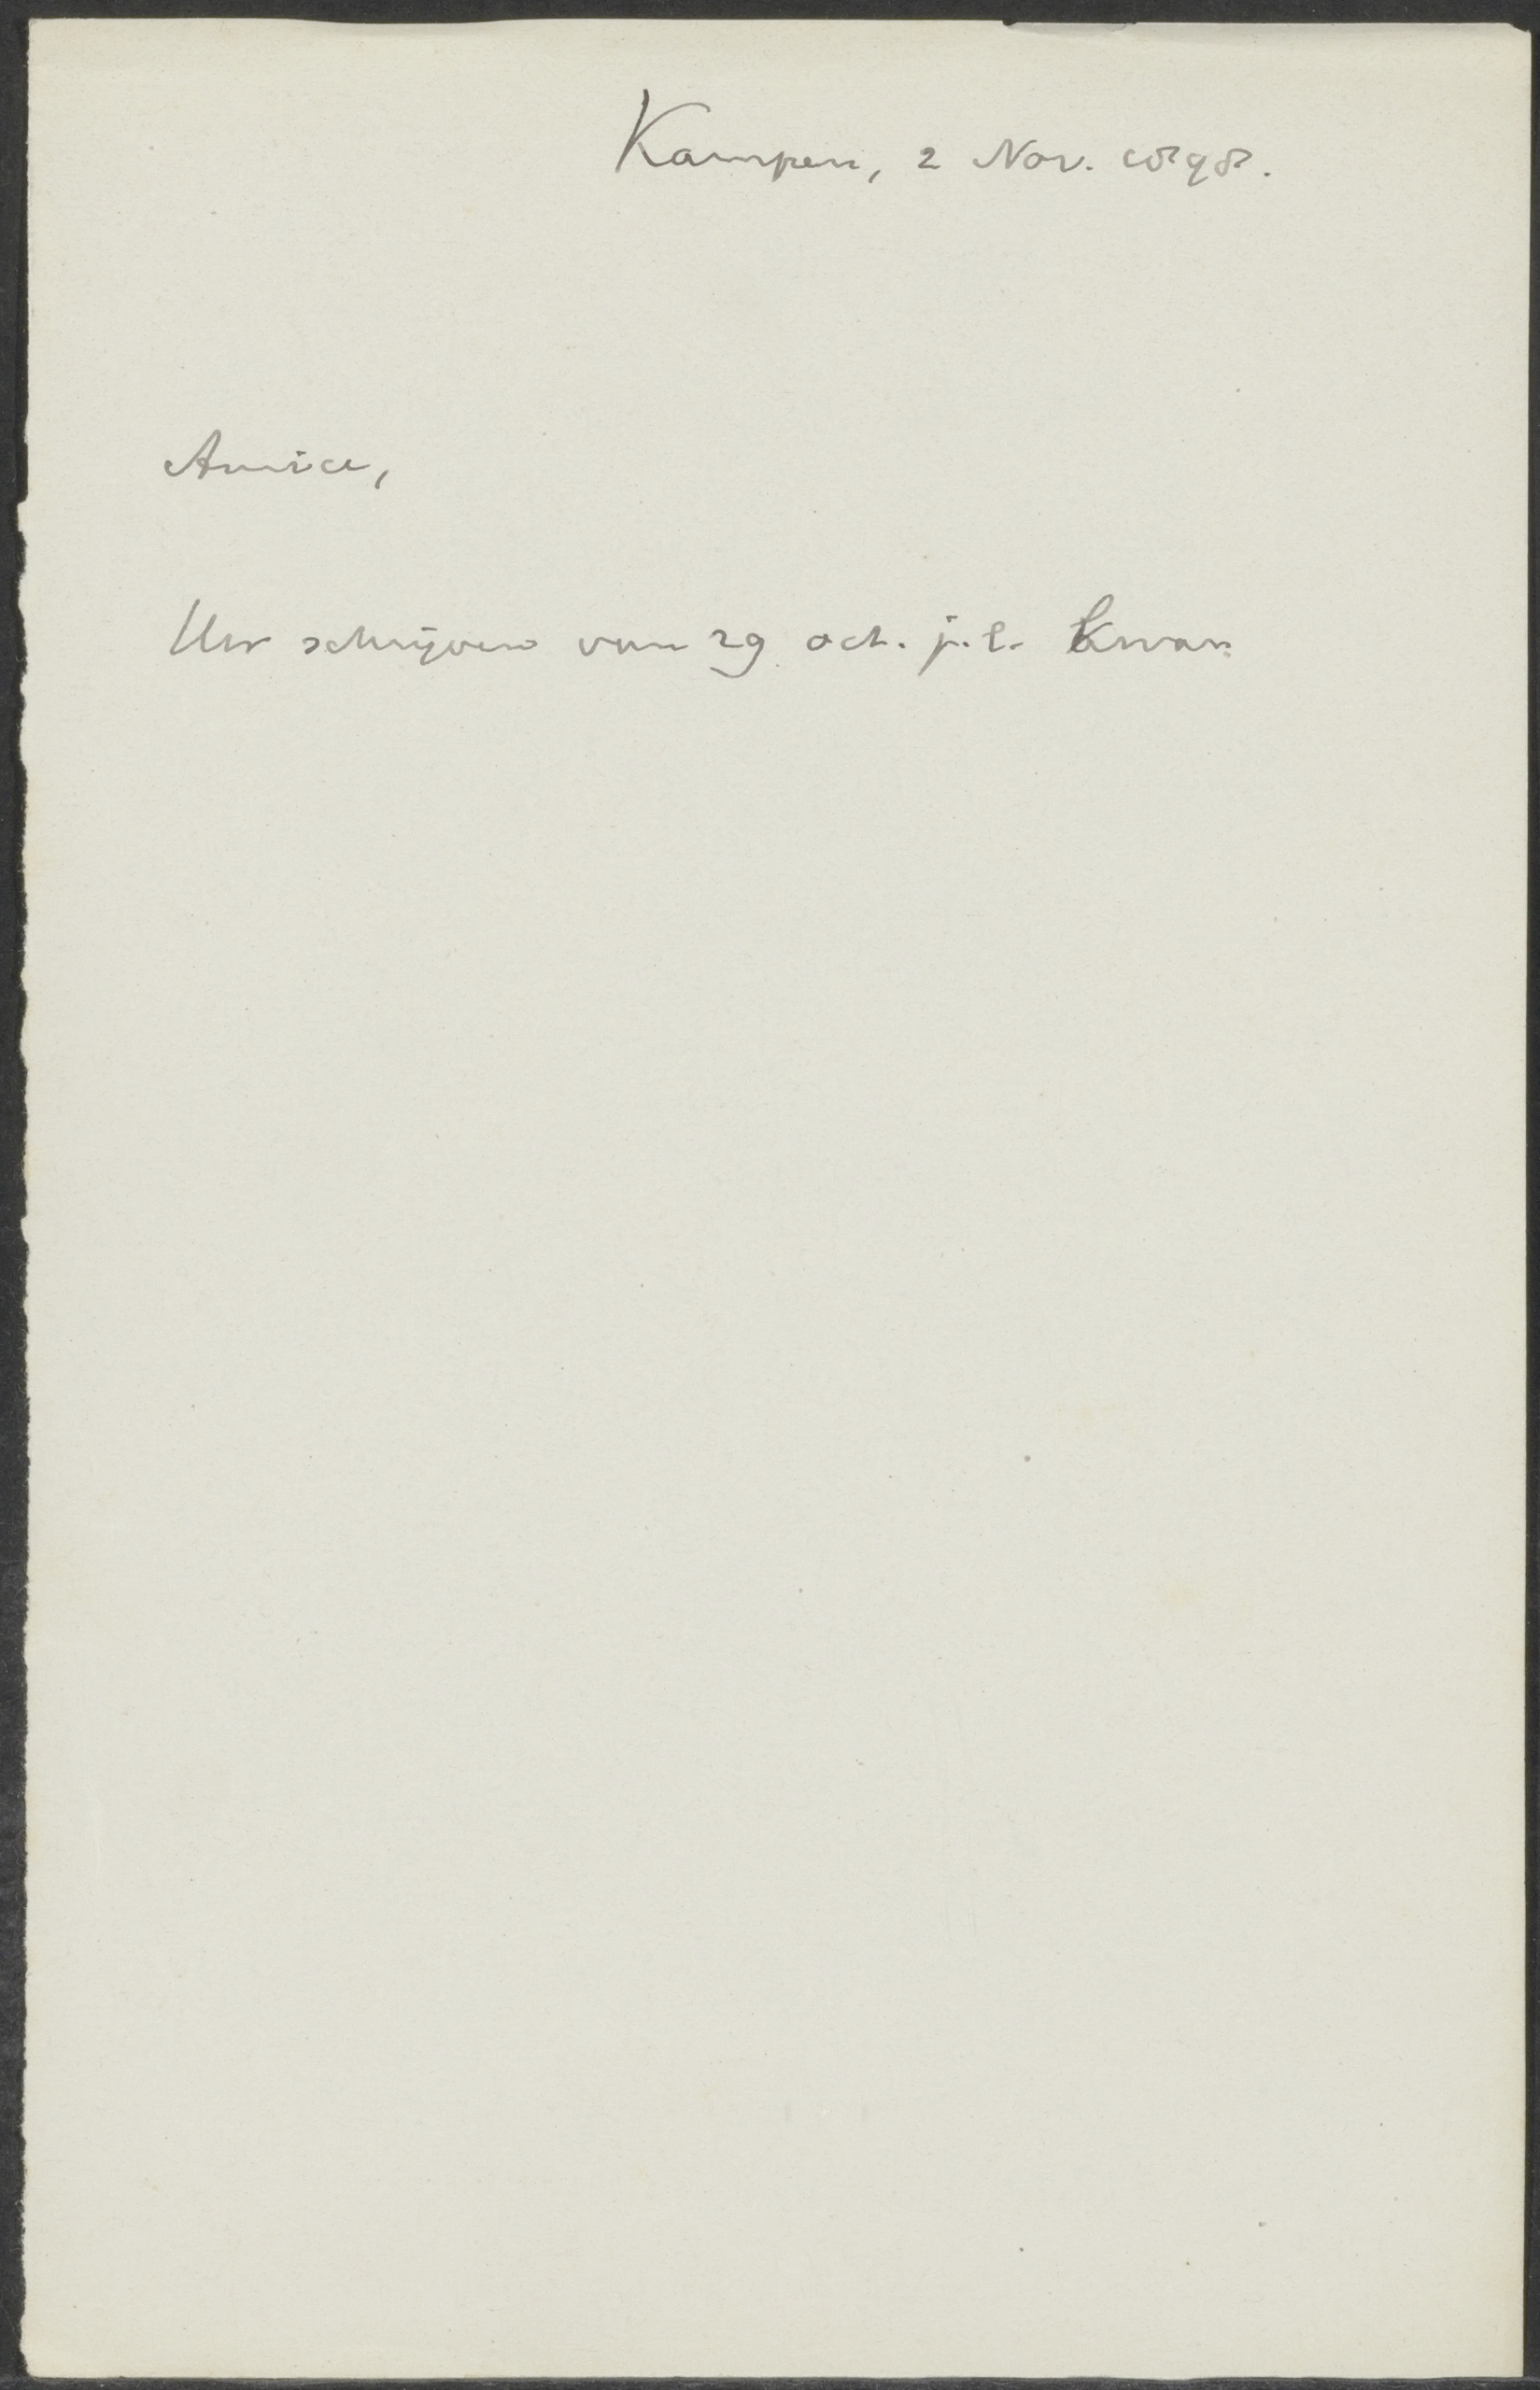 Kampen, 2 Nov. 1898.
Amice,
Uw schrijven van 29 oct. j.l. kwam